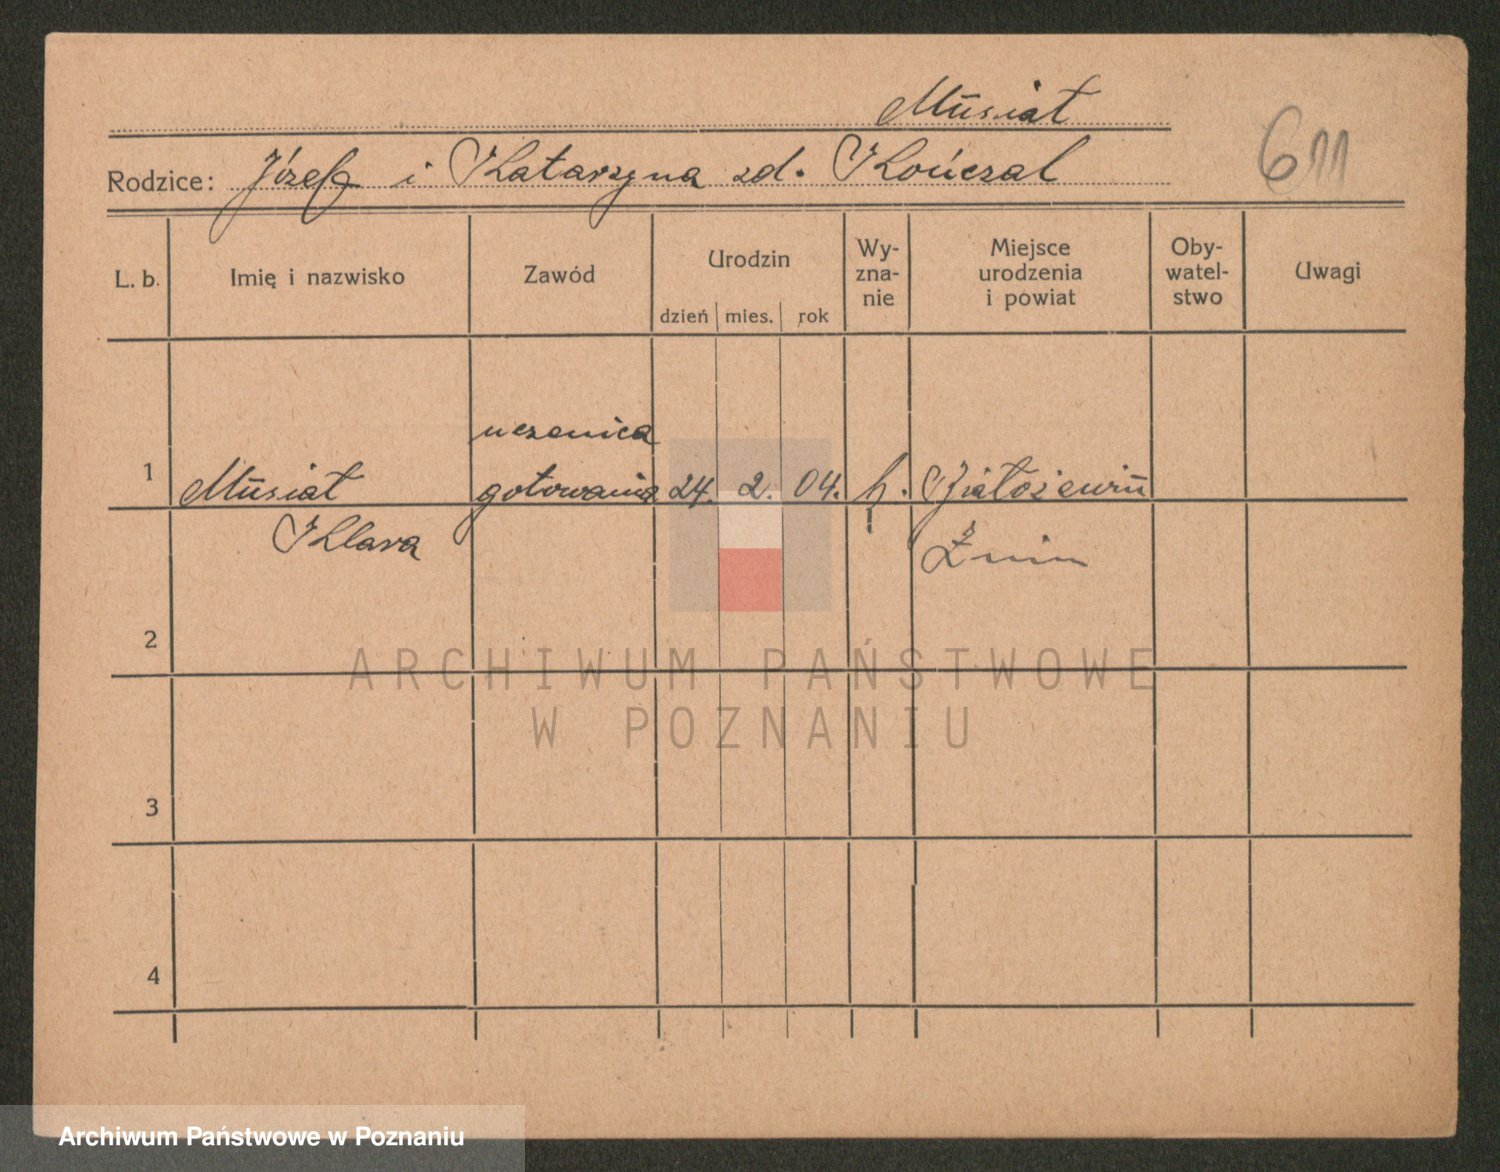 Musiał
611
Rodzice: Józef i Katarzyna zd. Kończal
L. b.
Imię i nazwisko
Zawód
Urodzin
dzień mies. rok
Wy-
zna-
nie
Miejsce
urodzenia
i powiat
Oby-
watel-
stwo
Uwagi
1
Musiał
Klara
uczenica
gotowania
24. 2. 04.
k.
Białożewin
Żnin
2
3
4
ARCHIWUM PAŃSTWOWE
W POZNANIU
Archiwum Państwowe w Poznaniu